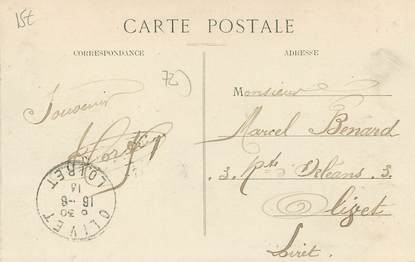 15€
CARTE POSTALE
CORRESPONDANCE
ADRESSE
72
Souvenir
Monsieur
Marcel Benard
3. Rte D'Orléans. 3.
Olivet
Loiret.
OLIVET
6 30
16 -6
14
LOIRET